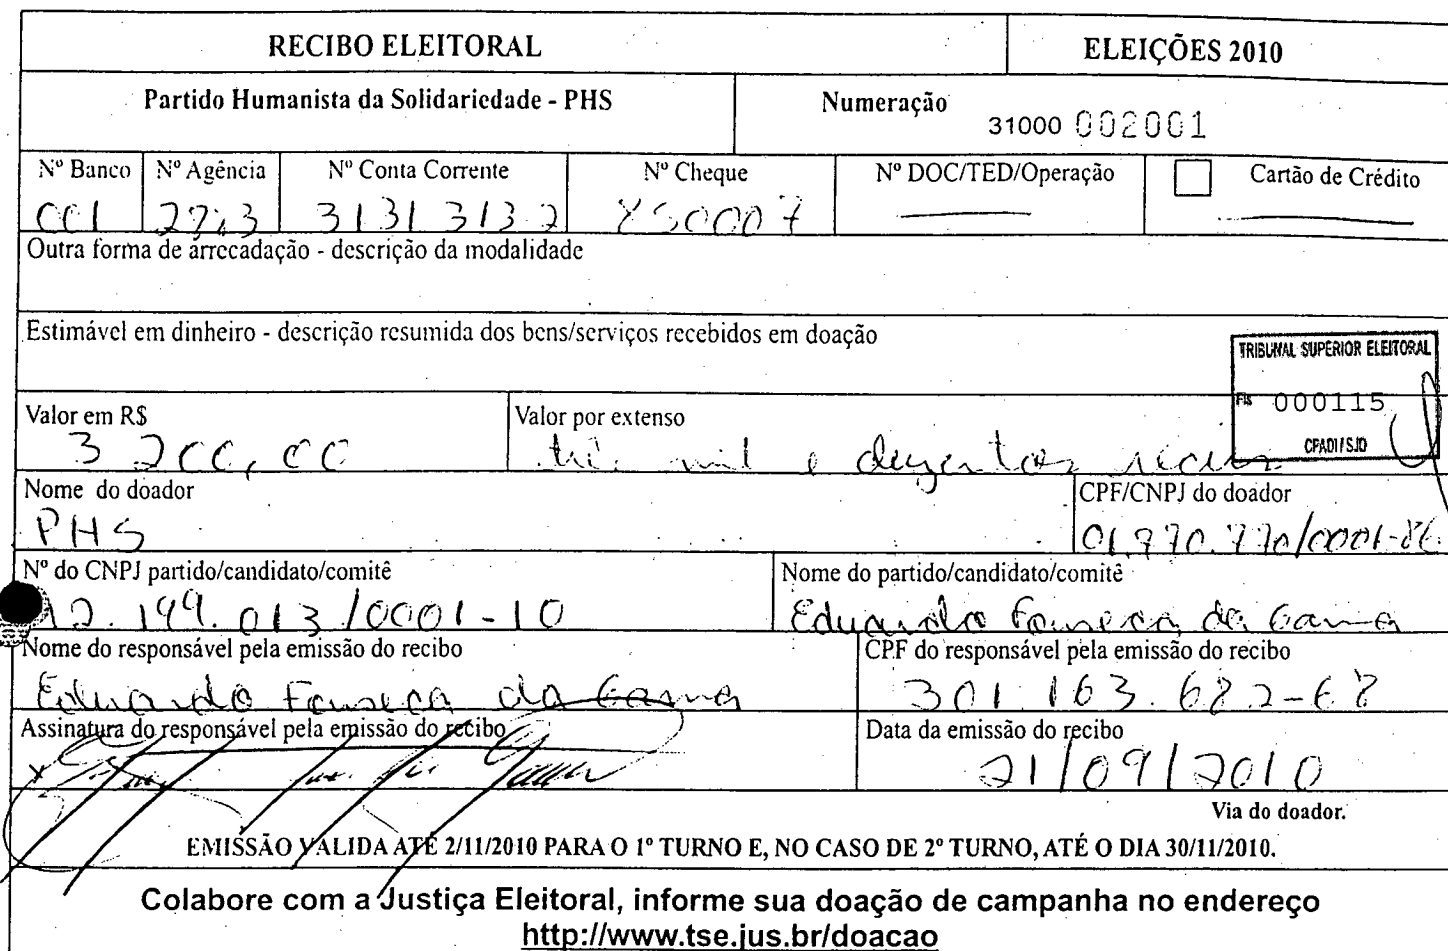 RECIBO ELEITORAL ELEIÇÕES 2010
Partido Humanista da Solidariedade - PHS Numeração 31000 002001
Nº Banco Nº Agência Nº Conta Corrente Nº Cheque Nº DOC/TED/Operação Cartão de Crédito
001 3131313-2 850007
Outra forma de arrecadação - descrição da modalidade
Estimável em dinheiro - descrição resumida dos bens/serviços recebidos em doação
TRIBUNAL SUPERIOR ELEITORAL
Fls 000115
CPADI/SJD
Valor em R$ Valor por extenso
3.200,00 três mil e duzentos reais
Nome do doador CPF/CNPJ do doador
PHS
Nº do CNPJ partido/candidato/comitê Nome do partido/candidato/comitê
12.199.013/0001-10 Eduardo Fonseca da Gama
Nome do responsável pela emissão do recibo CPF do responsável pela emissão do recibo
Eduardo Fonseca da Gama 301.163.682-68
Assinatura do responsável pela emissão do recibo Data da emissão do recibo
21/09/2010
Via do doador.
EMISSÃO VALIDA ATÉ 2/11/2010 PARA O 1º TURNO E, NO CASO DE 2º TURNO, ATÉ O DIA 30/11/2010.
Colabore com a Justiça Eleitoral, informe sua doação de campanha no endereço
http://www.tse.jus.br/doacao